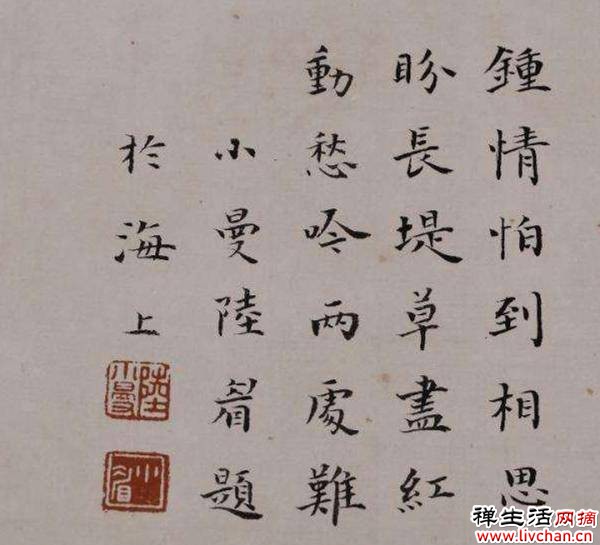 鍾情怕到相思
盼長堤草盡紅
動愁吟兩處難
小曼陸睂題
於海上
陸小曼
禅生活网摘
www.livchan.cn